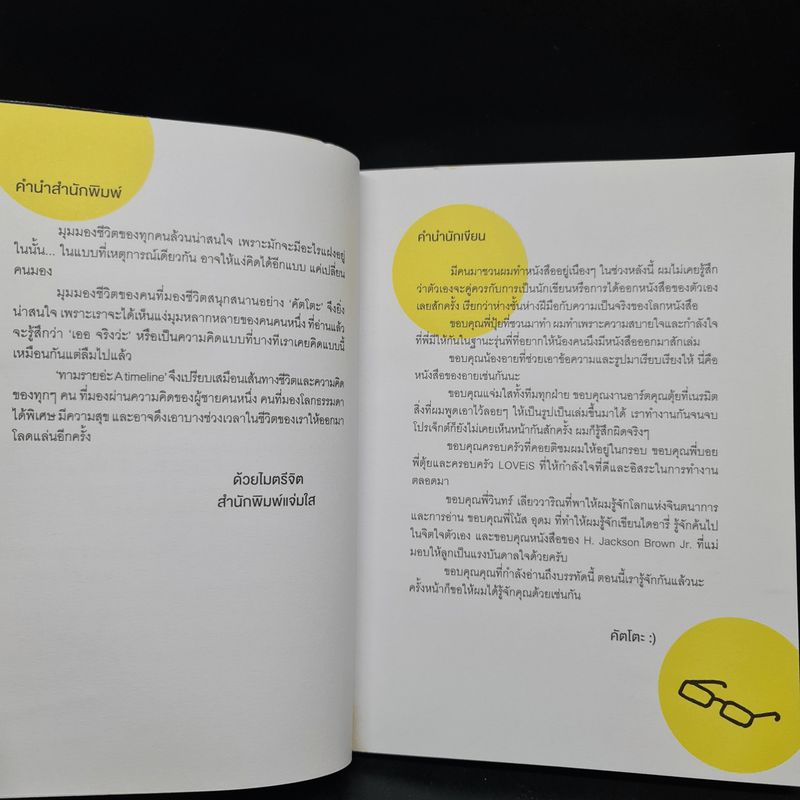 คำนำสำนักพิมพ์
มุมมองชีวิตของทุกคนล้วนน่าสนใจ เพราะมักจะมีอะไรแฝงอยู่
ในนั้น... ในแบบที่เหตุการณ์เดียวกัน อาจให้แง่คิดได้อีกแบบ แค่เปลี่ยน
คนมอง
มุมมองชีวิตของคนที่มองชีวิตสนุกสนานอย่าง ‘คัตโตะ’ จึงยิ่ง
น่าสนใจ เพราะเราจะได้เห็นแง่มุมหลากหลายของคนคนหนึ่ง ที่อ่านแล้ว
จะรู้สึกว่า ‘เออ จริงว่ะ’ หรือเป็นความคิดแบบที่บางทีเราเคยคิดแบบนี้
เหมือนกันแต่ลืมไปแล้ว
‘ทามรายอ่ะ A timeline’ จึงเปรียบเสมือนเส้นทางชีวิตและความคิด
ของทุกๆ คน ที่มองผ่านความคิดของผู้ชายคนหนึ่ง คนที่มองโลกธรรมดา
ได้พิเศษ มีความสุข และอาจดึงเอาบางช่วงเวลาในชีวิตของเราให้ออกมา
โลดแล่นอีกครั้ง
ด้วยไมตรีจิต
สำนักพิมพ์แจ่มใส
คำนำนักเขียน
มีคนมาชวนผมทำหนังสืออยู่เนืองๆ ในช่วงหลังนี้ ผมไม่เคยรู้สึก
ว่าตัวเองจะคู่ควรกับการเป็นนักเขียนหรือการได้ออกหนังสือของตัวเอง
เลยสักครั้ง เรียกว่าห่างชั้นห่างฝีมือกับความเป็นจริงของโลกหนังสือ
ขอบคุณพี่ปุ้ยที่ชวนมาทำ ผมทำเพราะความสบายใจและกำลังใจ
ที่พี่มีให้กันในฐานะรุ่นพี่ที่อยากให้น้องคนนึงมีหนังสือออกมาสักเล่ม
ขอบคุณน้องอายที่ช่วยเอาข้อความและรูปมาเรียบเรียงให้ นี่คือ
หนังสือของอายเช่นกันนะ
ขอบคุณแจ่มใสทั้งทีมทุกฝ่าย ขอบคุณงานอาร์ตคุณตุ้ยที่เนรมิต
สิ่งที่ผมพูดเอาไว้ลอยๆ ให้เป็นรูปเป็นเล่มขึ้นมาได้ เราทำงานกันจนจบ
โปรเจ็กต์ก็ยังไม่เคยเห็นหน้ากันสักครั้ง ผมก็รู้สึกผิดจริงๆ
ขอบคุณครอบครัวที่คอยติชมผมให้อยู่ในกรอบ ขอบคุณพี่บอย
พี่ตุ้ยและครอบครัว LOVEiS ที่ให้กำลังใจที่ดีและอิสระในการทำงาน
ตลอดมา
ขอบคุณพี่วินทร์ เลียววาริณที่พาให้ผมรู้จักโลกแห่งจินตนาการ
และการอ่าน ขอบคุณพี่โน้ส อุดม ที่ทำให้ผมรู้จักเขียนไดอารี่ รู้จักค้นไป
ในจิตใจตัวเอง และขอบคุณหนังสือของ H. Jackson Brown Jr. ที่แม่
มอบให้ลูกเป็นแรงบันดาลใจด้วยครับ
ขอบคุณคุณที่กำลังอ่านถึงบรรทัดนี้ ตอนนี้เรารู้จักกันแล้วนะ
ครั้งหน้าก็ขอให้ผมได้รู้จักคุณด้วยเช่นกัน
คัตโตะ :)